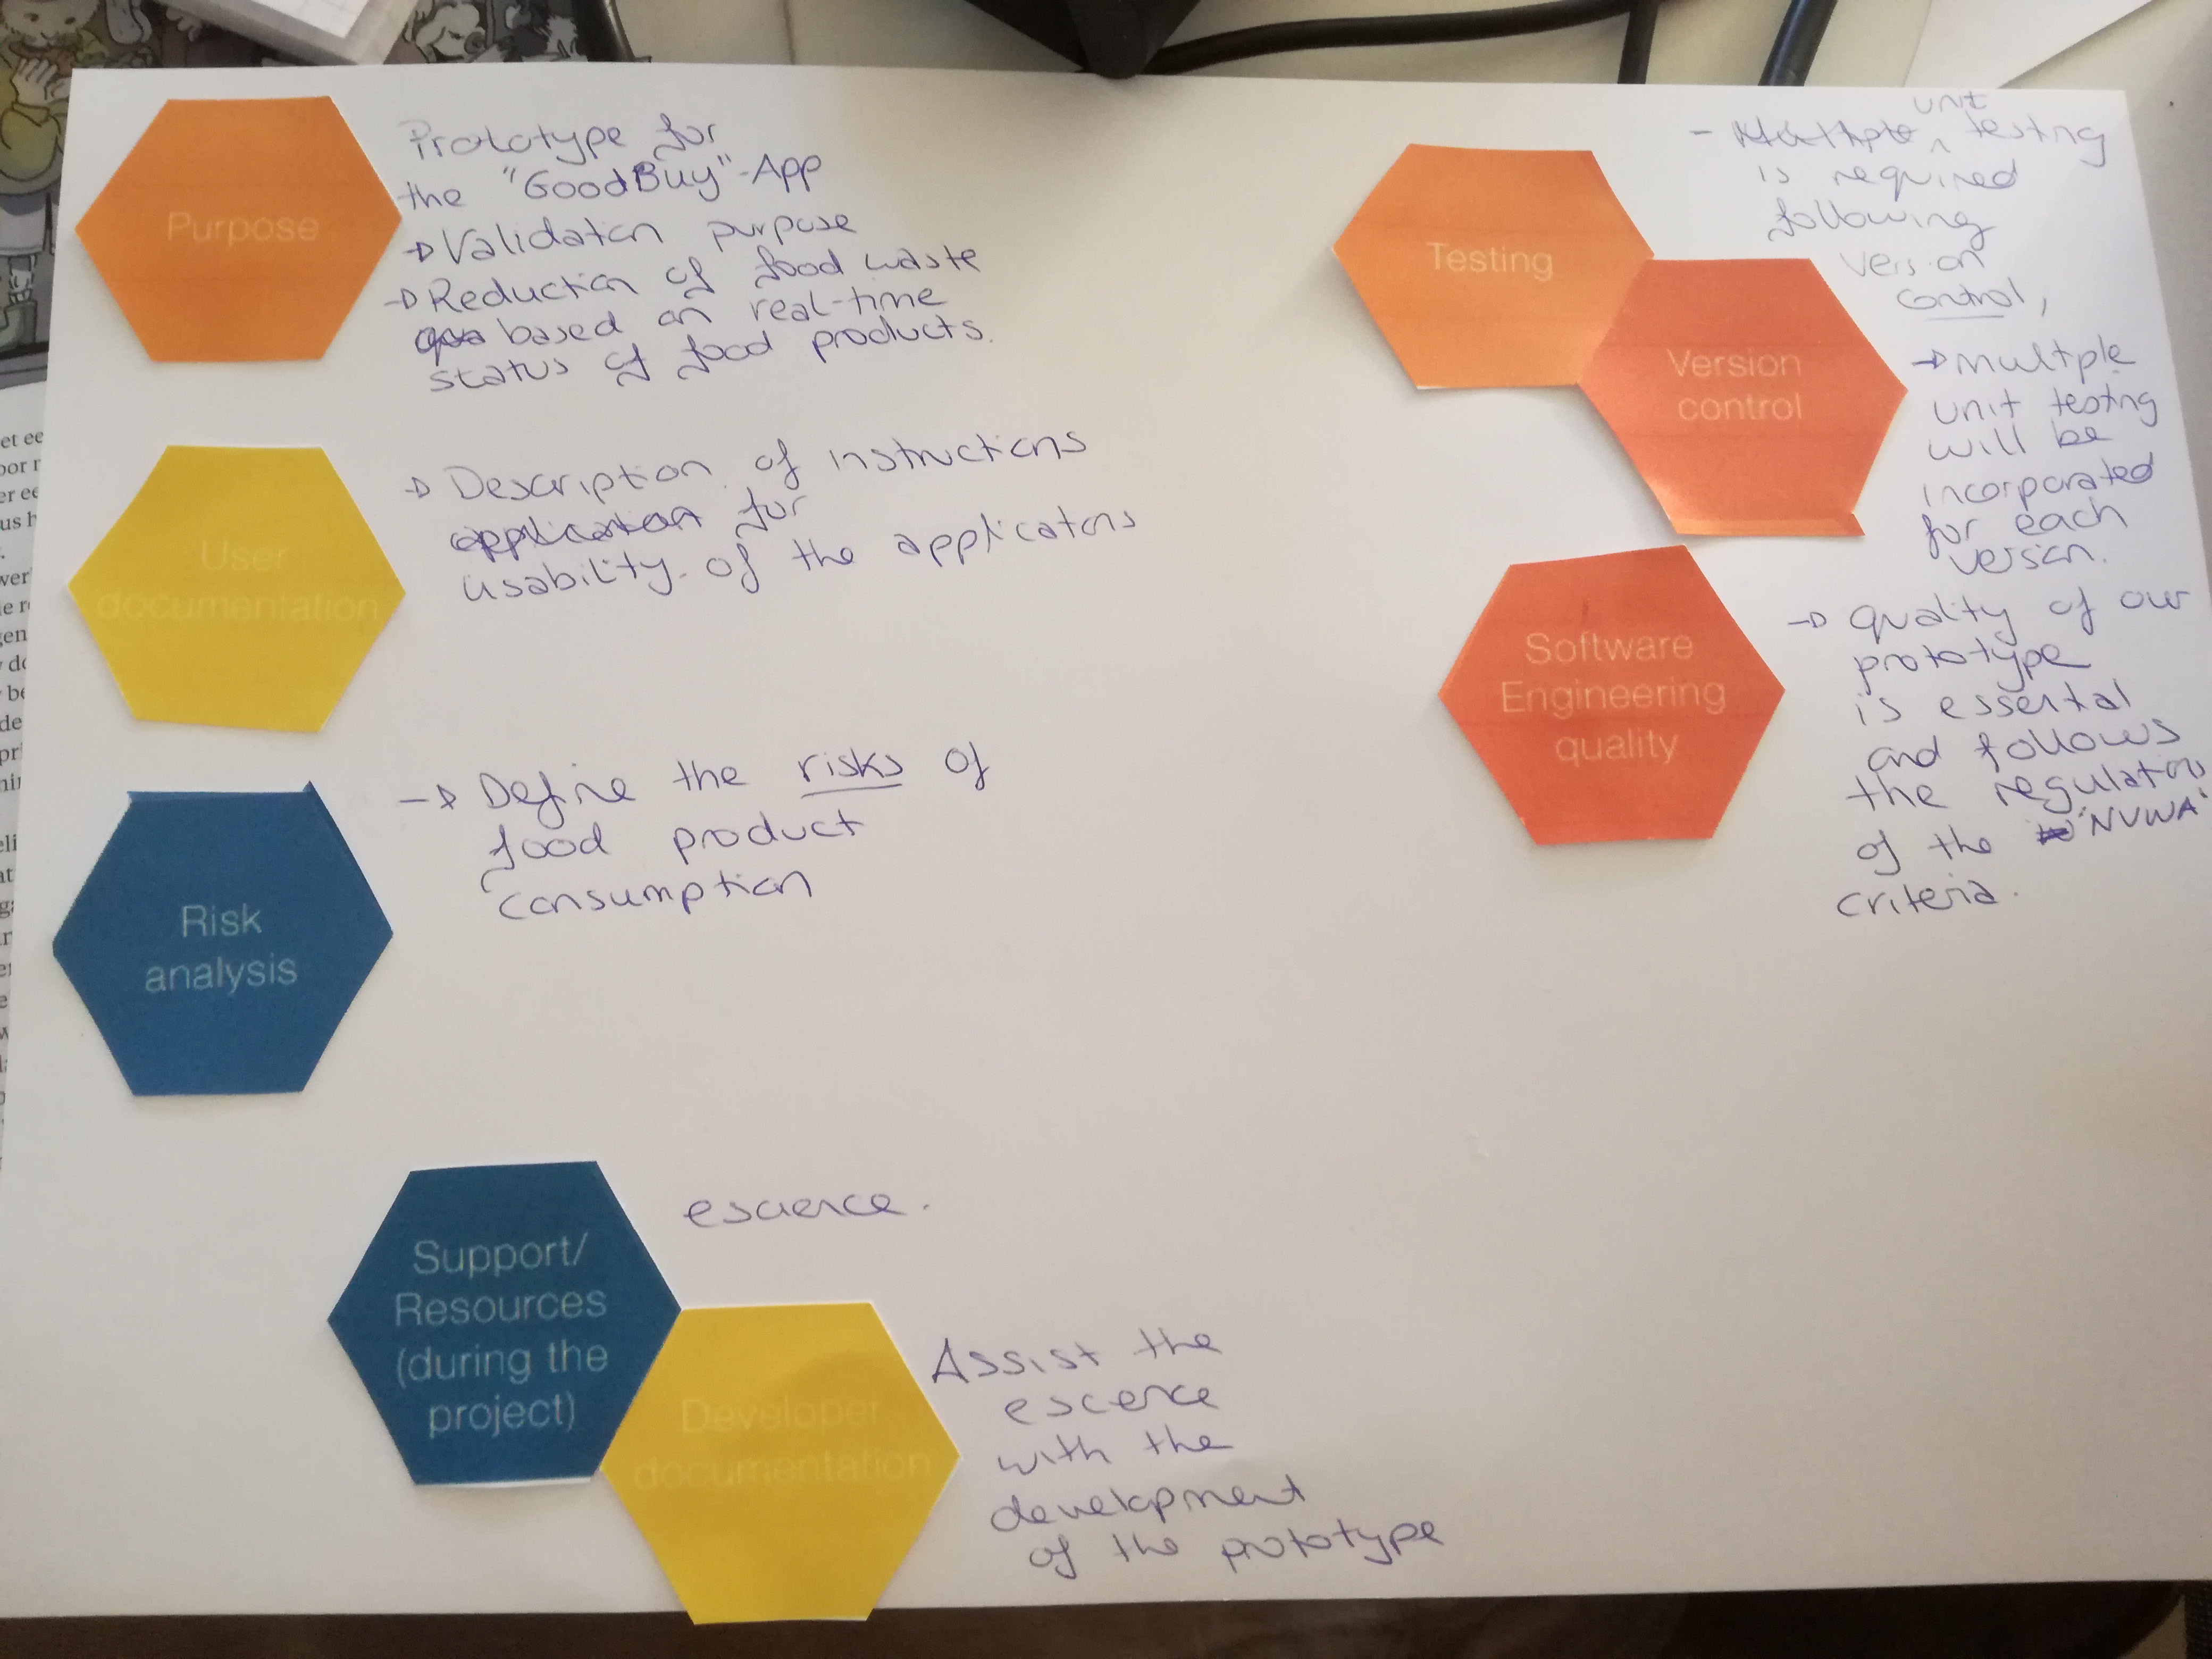 Purpose
Prototype for
the "GoodBuy"-App
→ Validation purpose
→ Reduction of food waste
based on real-time
status of food products.
User
documentation
→ Description of instructions
for
usability of the applications
Risk
analysis
→ Define the risks of
food product
consumption
Support/
Resources
(during the
project)
escience.
Developer
documentation
Assist the
escence
with the
development
of the prototype
Testing
- unit testing
is required
following
version
control,
Version
control
→ multiple
unit testing
will be
incorporated
for each
version.
Software
Engineering
quality
→ quality of our
prototype
is essential
and follows
the regulations
of the 'NVWA'
criteria.